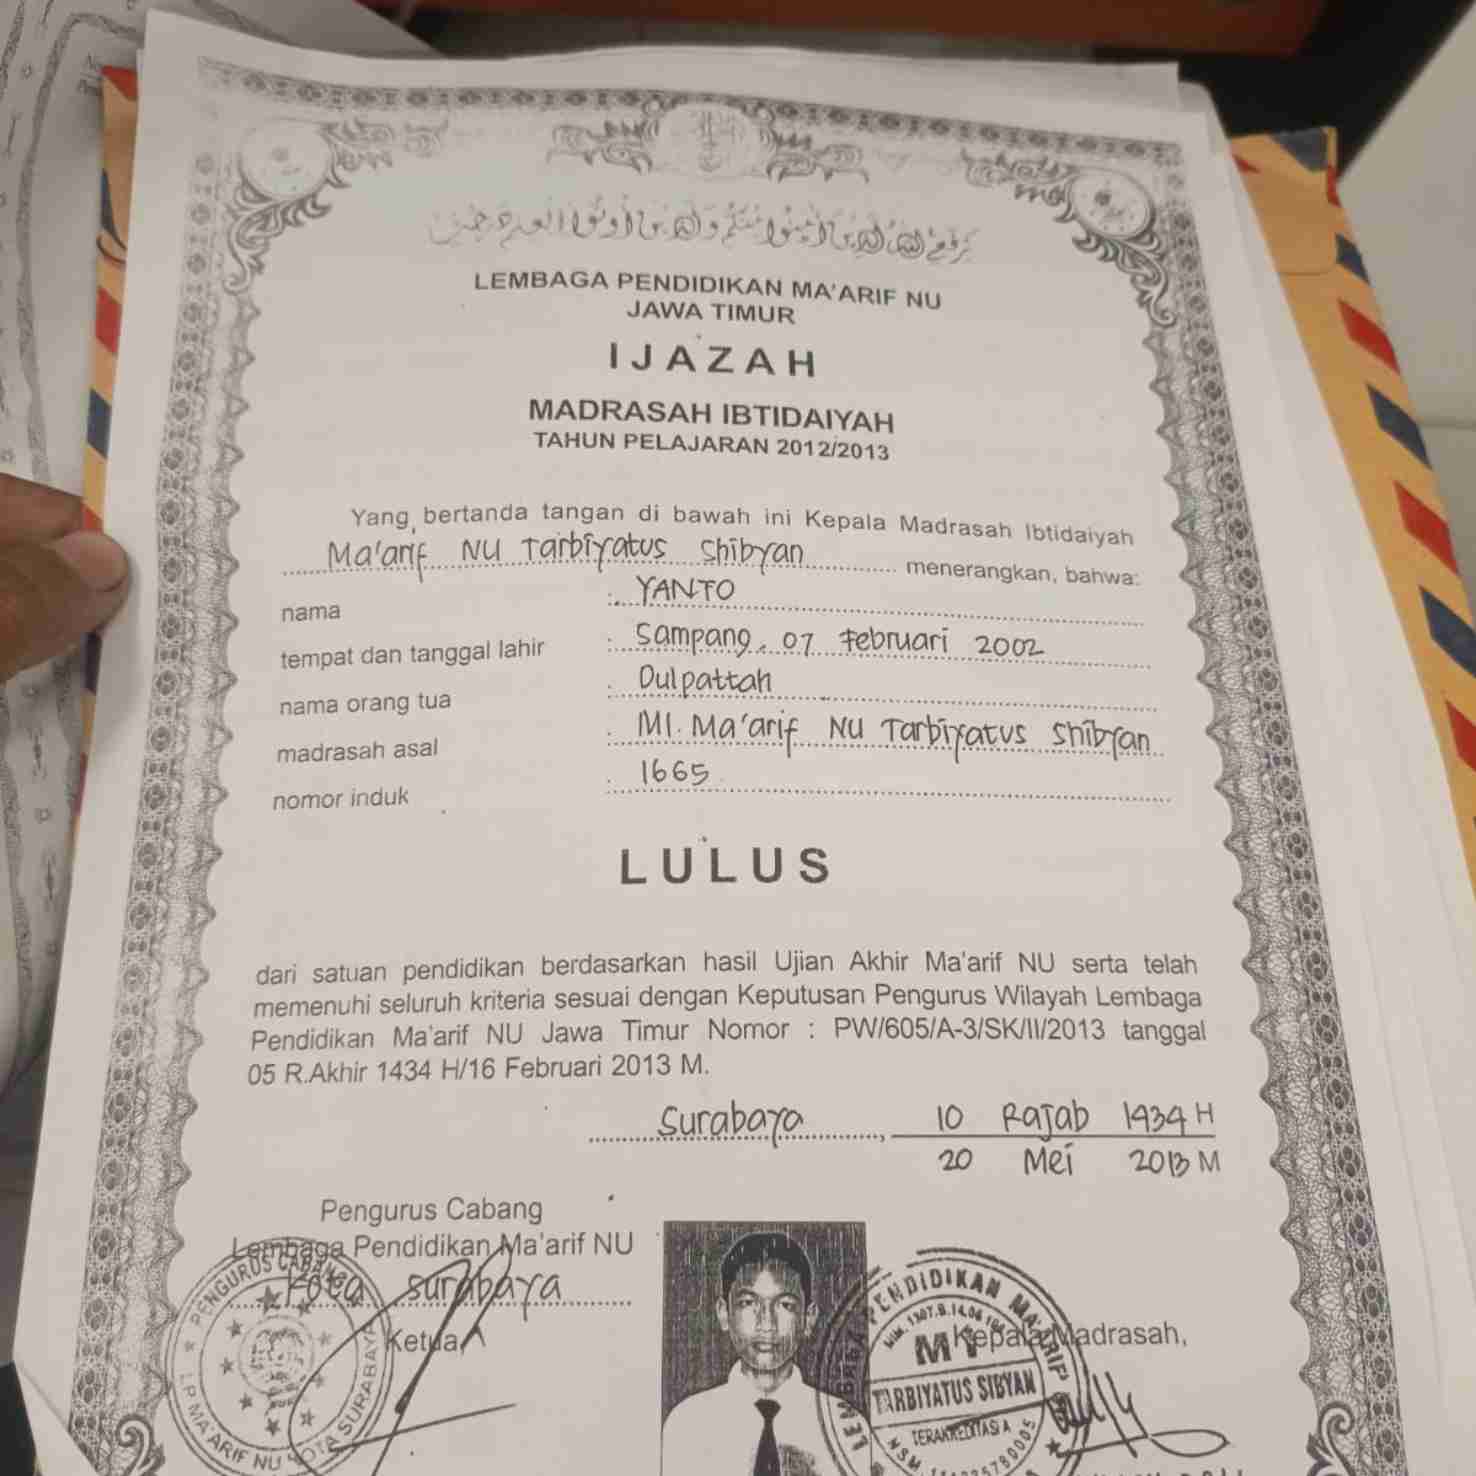 LEMBAGA PENDIDIKAN MA'ARIF NU
JAWA TIMUR
IJAZAH
MADRASAH IBTIDAIYAH
TAHUN PELAJARAN 2012/2013
Yang bertanda tangan di bawah ini Kepala Madrasah Ibtidaiyah
Ma'arif NU Tarbiyatus Shibyan menerangkan, bahwa:
nama : YANTO
tempat dan tanggal lahir : Sampang, 07 Februari 2002
nama orang tua : Dulpattah
madrasah asal : MI. Ma'arif NU Tarbiyatus Shibyan
nomor induk : 1665
LULUS
dari satuan pendidikan berdasarkan hasil Ujian Akhir Ma'arif NU serta telah
memenuhi seluruh kriteria sesuai dengan Keputusan Pengurus Wilayah Lembaga
Pendidikan Ma'arif NU Jawa Timur Nomor : PW/605/A-3/SK/II/2013 tanggal
05 R.Akhir 1434 H/16 Februari 2013 M.
Surabaya, 10 Rajab 1434 H
20 Mei 2013 M
Pengurus Cabang
Lembaga Pendidikan Ma'arif NU
Kota Surabaya
Ketua,
PENGURUS CABANG
LP MA'ARIF NU KOTA SURABAYA
Kepala Madrasah,
LEMBAGA PENDIDIKAN MA'ARIF
MI
TARBIYATUS SIBYAN
TERAKREDITASI A